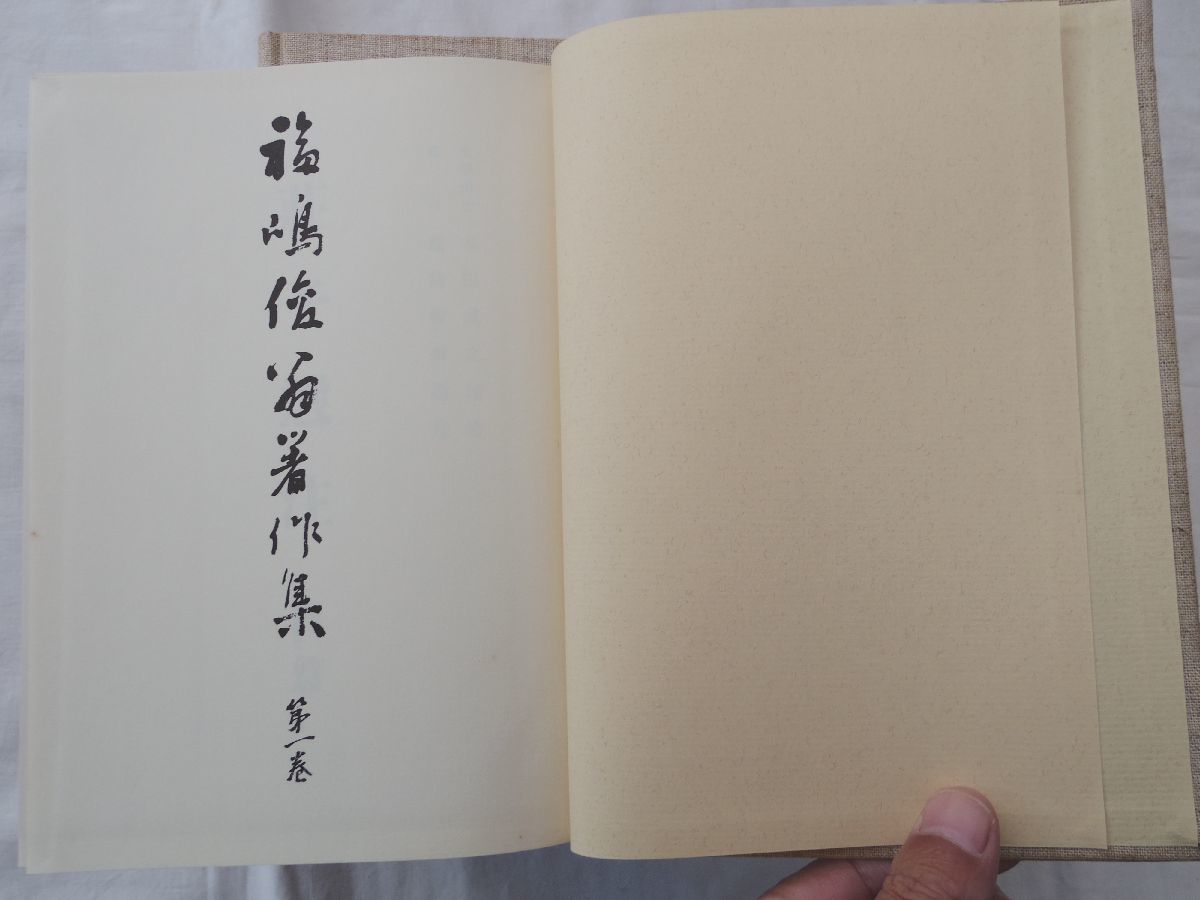 福嶋俊翁著作集
第一巻